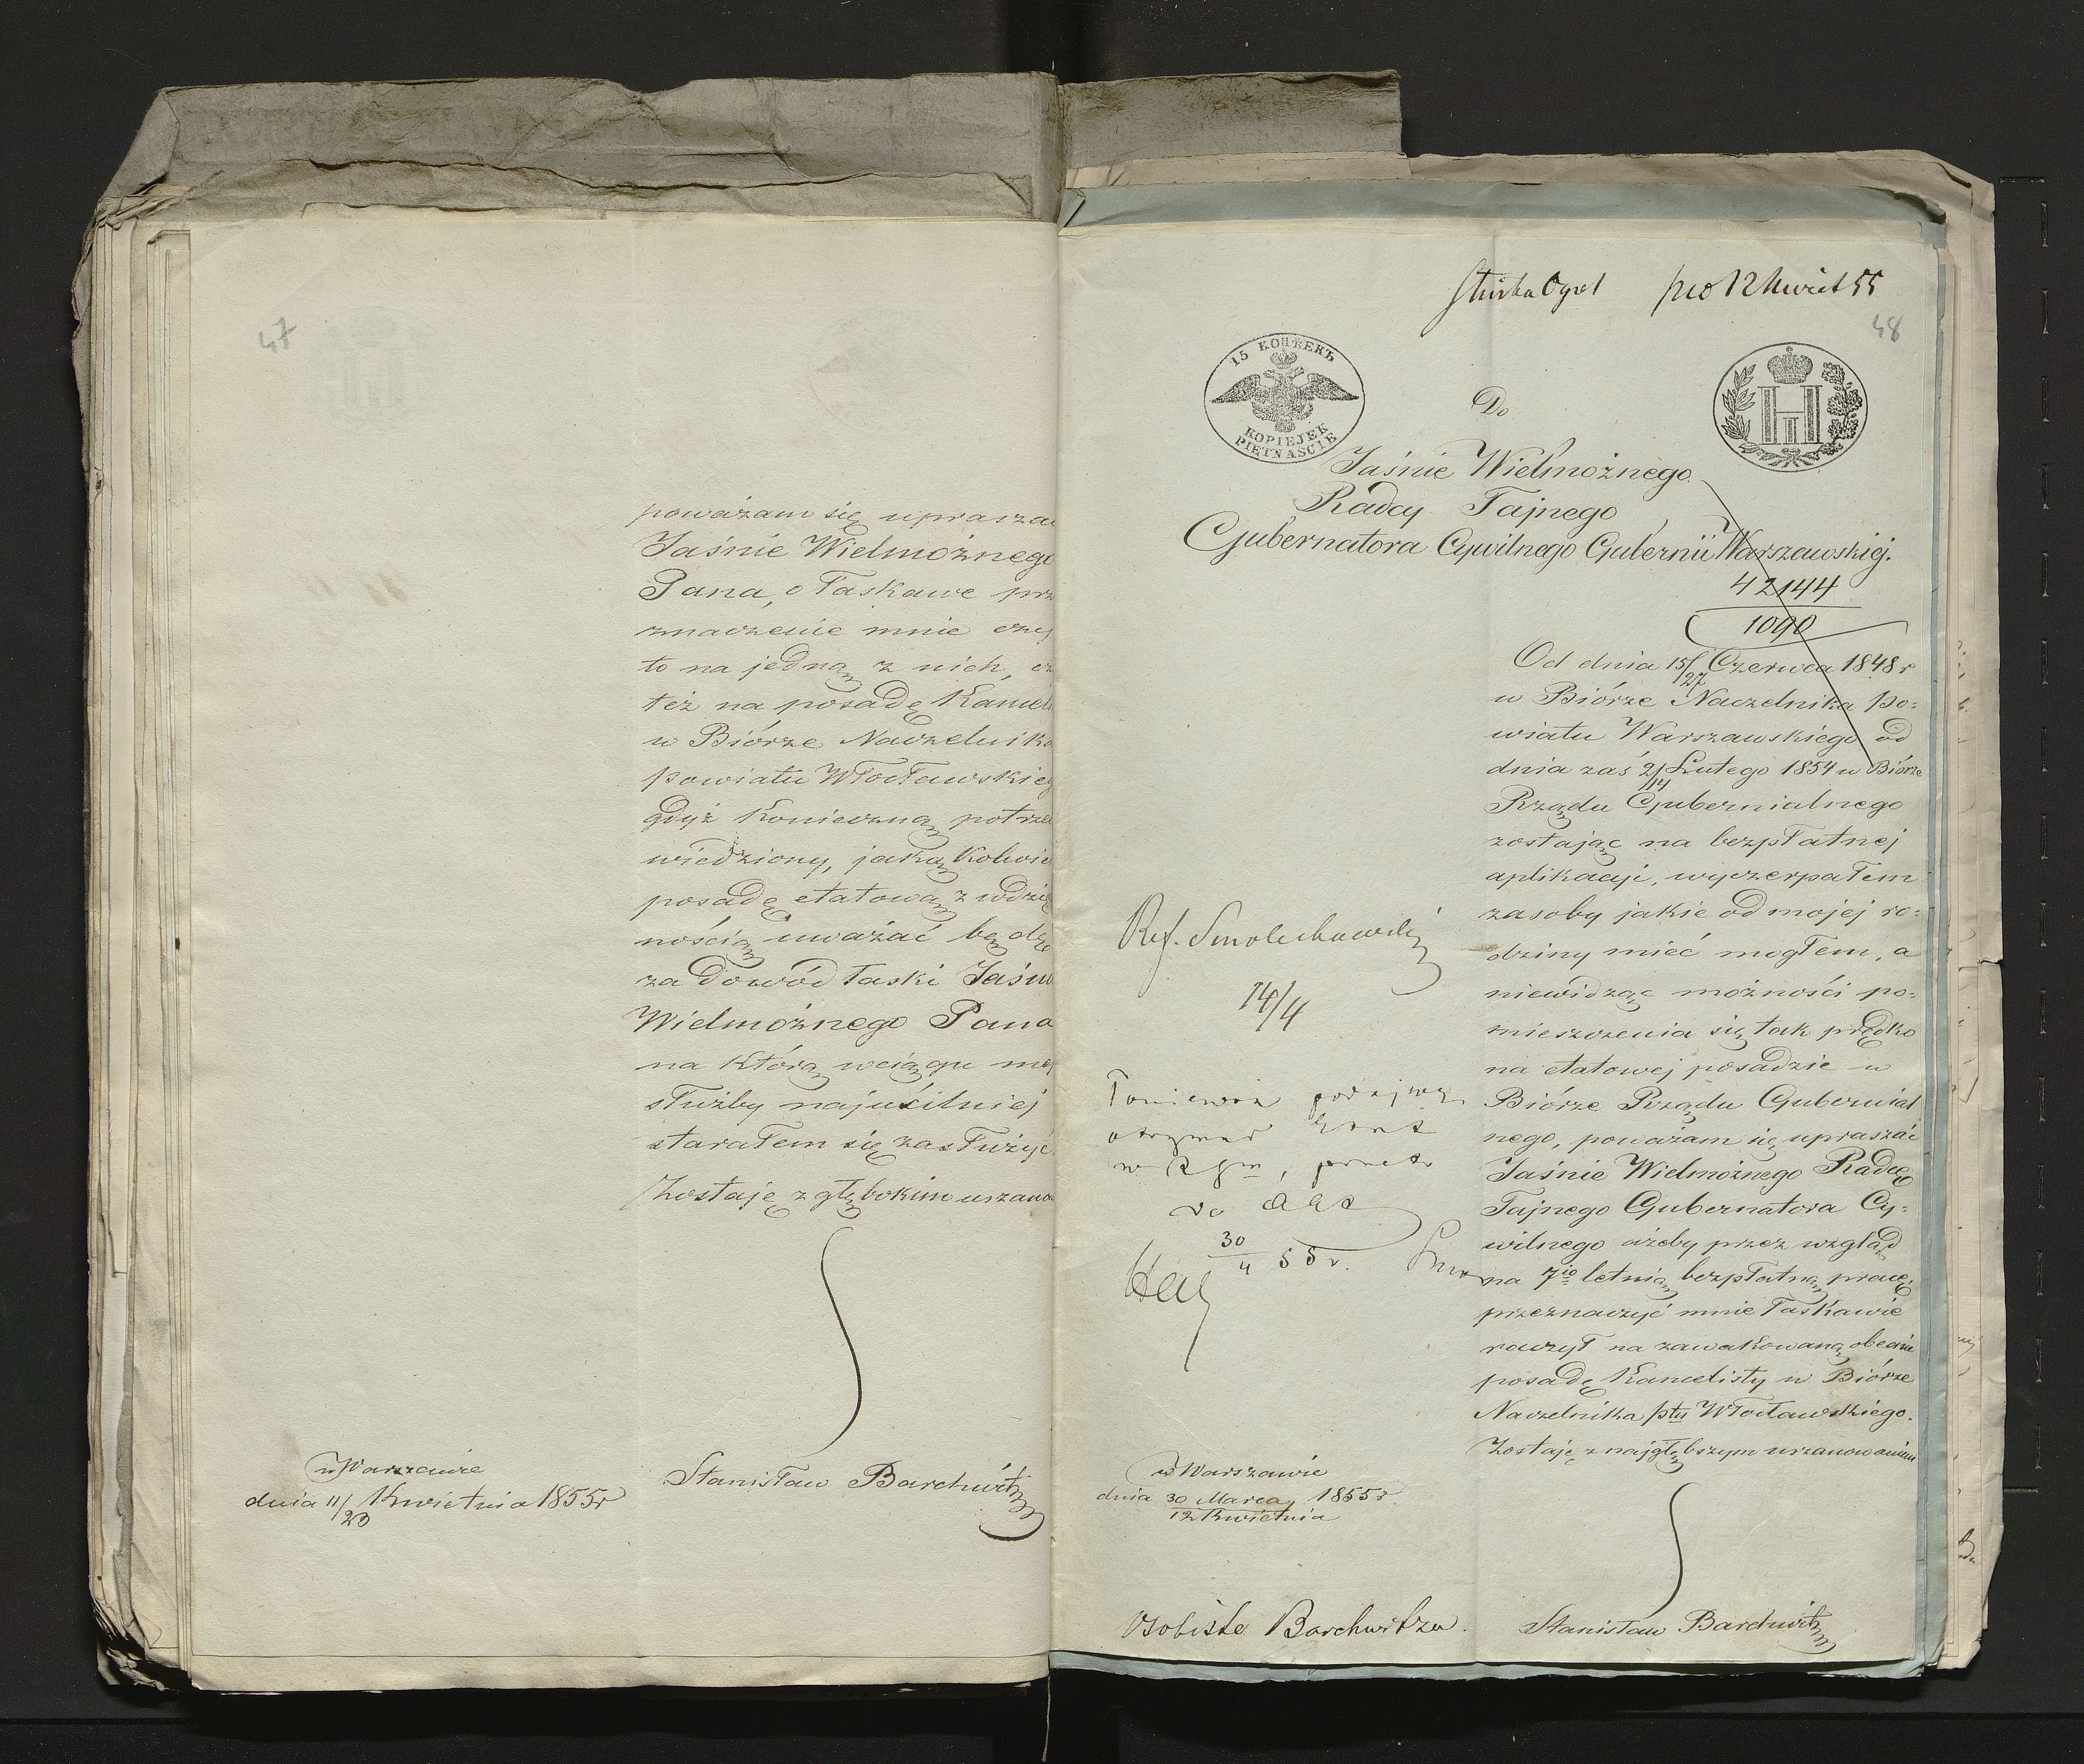 47
poważam się uprasza
Jaśnie Wielmożnego
Pana, o łaskawe prze
znaczenie mnie czy
to na jedną z nich, cz
też na posadę Kancel
w Biórze Naczelnika
powiatu Włocławskieg
gdyż konieczną potrze
wiedziony, jaką kolwie
posadę etatową z wdzię
nością uważać będę
za dowód łaski Jaśn
Wielmożnego Pana
na którą wciągu mej
służby najusilniej
starałem się zasłużyć
Zostaję z głębokim uszano
w Warszawie
dnia 11/23 Kwietnia 1855 r
Stanisław Barchwitz
12 Kwiet 55
48
15 КОПѢЕКЪ
KOPIEJEK
PIĘTNAŚCIE
Н I
Do
Jaśnie Wielmożnego
Radcy Tajnego
Gubernatora Cywilnego Gubernii Warszawskiej.
42144
1090
Od dnia 15/27 Czerwca 1848 r
w Biórze Naczelnika Po=
wiatu Warszawskiego od
dnia zaś 2/14 Lutego 1854 w Biórze
Rządu Gubernialnego
zostając na bezpłatnej
aplikacyi, wyczerpałem
zasoby jakie od mojej ro=
dziny mieć mogłem, a
niewidząc możności po=
mieszczenia się tak prędko
na etatowej posadzie w
Biórze Rządu Gubernial
nego, poważam się upraszać
Jaśnie Wielmożnego Radcę
Tajnego Gubernatora Cy=
wilnego ażeby przez wzgląd
na 7io letnią bezpłatną pracę
przeznaczyć mnie łaskawie
raczył na zawakowaną obecnie
posadę Kancelisty w Biórze
Naczelnika ptu Włocławskiego.
Zostaję z najgłębszym uszanowaniem
Ref.
14/4
do akt
30/4 55 r.
w Warszawie
dnia 30 Marca 1855 r
12 Kwietnia
Osobiste Barchwitza.
Stanisław Barchwitz